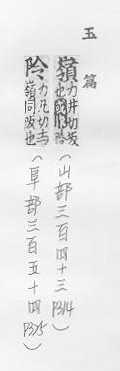 玉篇
嶺力井切坂也（山部三百四十三P314）
阾力井切古嶺同阪也（阜部三百五十四P325）